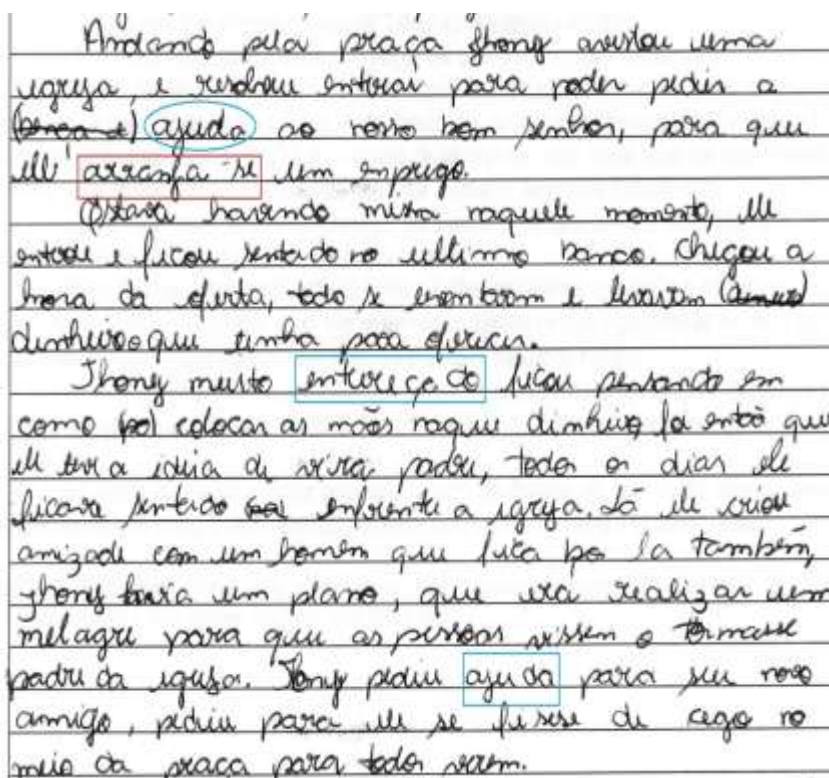 Andando pela praça Jhony avistou uma
igreja, e resolveu entrar para poder pedir a
(bença e) ajuda ao nosso bom senhor, para que
ele arranja-se um emprego.
Estava havendo missa naquele momento, ele
entrou e ficou sentado no ultimo banco. Chegou a
hora da oferta, todo se levantaram e levaram
dinheiro que tinha para oferecer.
Jhony muito entereçado ficou pensando em
como colocar as mãos naquele dinheiro foi então que
ele teve a ideia de virá padre, todos os dias ele
ficava sentado enfrente a igreja. Lá ele criou
amizade com um homem que fica por la também,
Jhony havia um plano, que irá realizar um
milagre para que as pessoas vissem e tornasse
padre da igreja. Jhony pediu ajuda para seu novo
amigo, pediu para ele se fisese de cego no
meio da praça para todos verem.